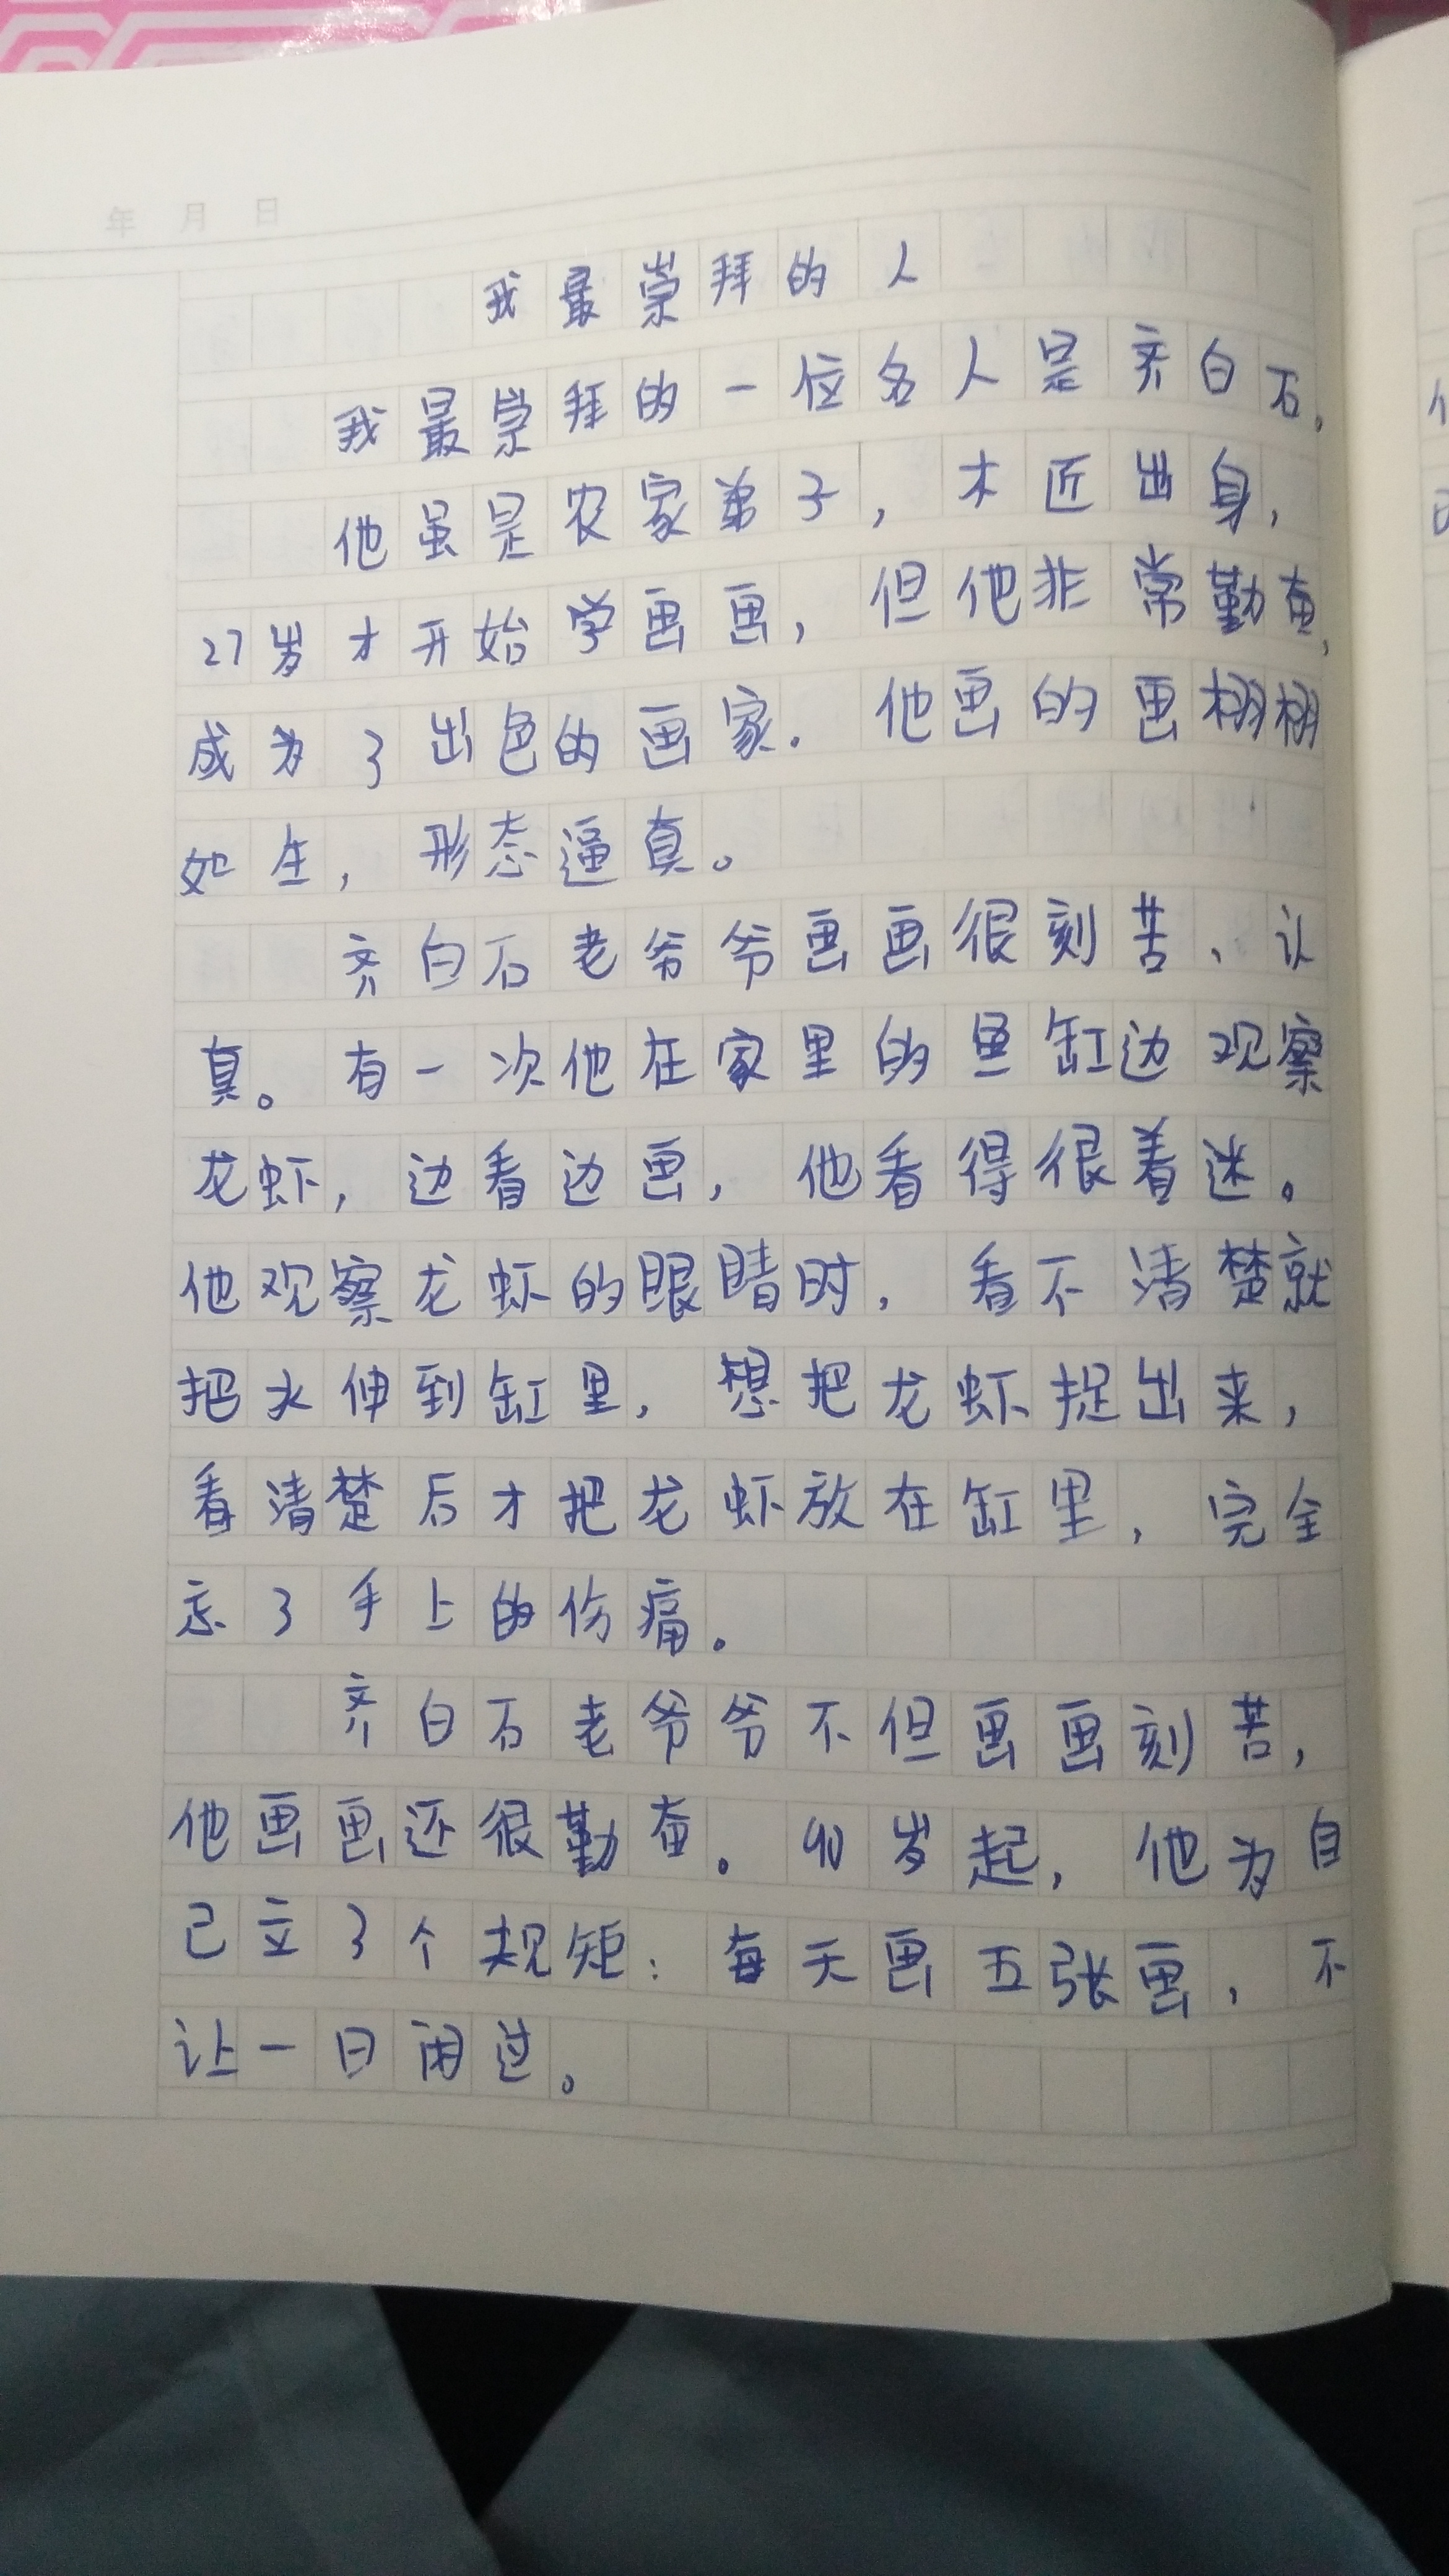 年 月 日
我最崇拜的人
我最崇拜的一位名人是齐白石。
他虽是农家弟子，木匠出身，
27岁才开始学画画，但他非常勤奋，
成为了出色的画家。他画的画栩栩
如生，形态逼真。
齐白石老爷爷画画很刻苦、认
真。有一次他在家里的鱼缸边观察
龙虾，边看边画，他看得很着迷。
他观察龙虾的眼睛时，看不清楚就
把头伸到缸里，想把龙虾捉出来，
看清楚后才把龙虾放在缸里，完全
忘了手上的伤痛。
齐白石老爷爷不但画画刻苦，
他画画还很勤奋。90岁起，他为自
己立了个规矩：每天画五张画，不
让一日闲过。